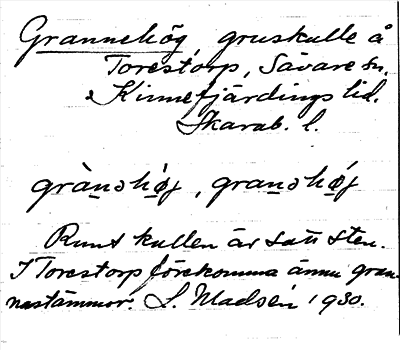 Grannehög, gruskulle å
Torestorp, Sävare sn.
Kinnefjärdings tid.
Skarab. l.
grànəhǫj, granəhǫ́j
Runt kullen är satt sten.
I Torestorp förekomma ännu gran-
nastämmor. S. Madsén 1930.